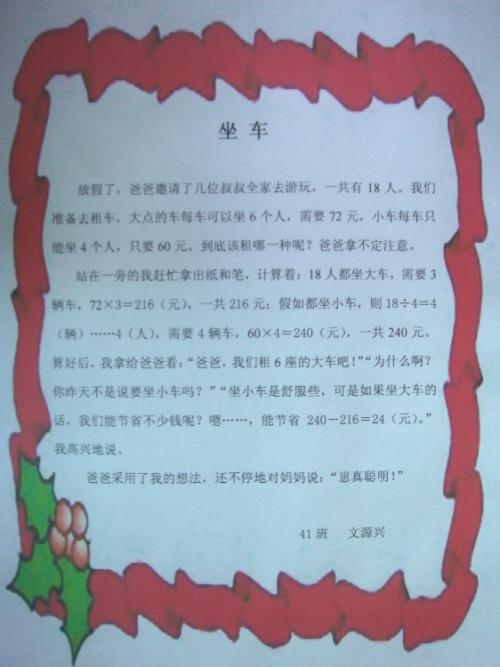 坐车
放假了，爸爸邀请了几位叔叔全家去游玩，一共有 18 人。我们
准备去租车，大点的车每车可以坐 6 个人，需要 72 元，小车每车只
能坐 4 个人，只要 60 元。到底该租哪一种呢？爸爸拿不定注意。
站在一旁的我赶忙拿出纸和笔，计算着：18 人都坐大车，需要 3
辆车，72×3=216（元），一共 216 元；假如都坐小车，则 18÷4=4
（辆）……4（人），需要 4 辆车，60×4=240（元），一共 240 元。
算好后，我拿给爸爸看：“爸爸，我们租 6 座的大车吧！”“为什么啊？
你昨天不是说要坐小车吗？”“坐小车是舒服些，可是如果坐大车的
话，我们能节省不少钱呢？嗯……，能节省 240－216=24（元）。”
我高兴地说。
爸爸采用了我的想法，还不停地对妈妈说：“崽真聪明！”
41 班 文源兴